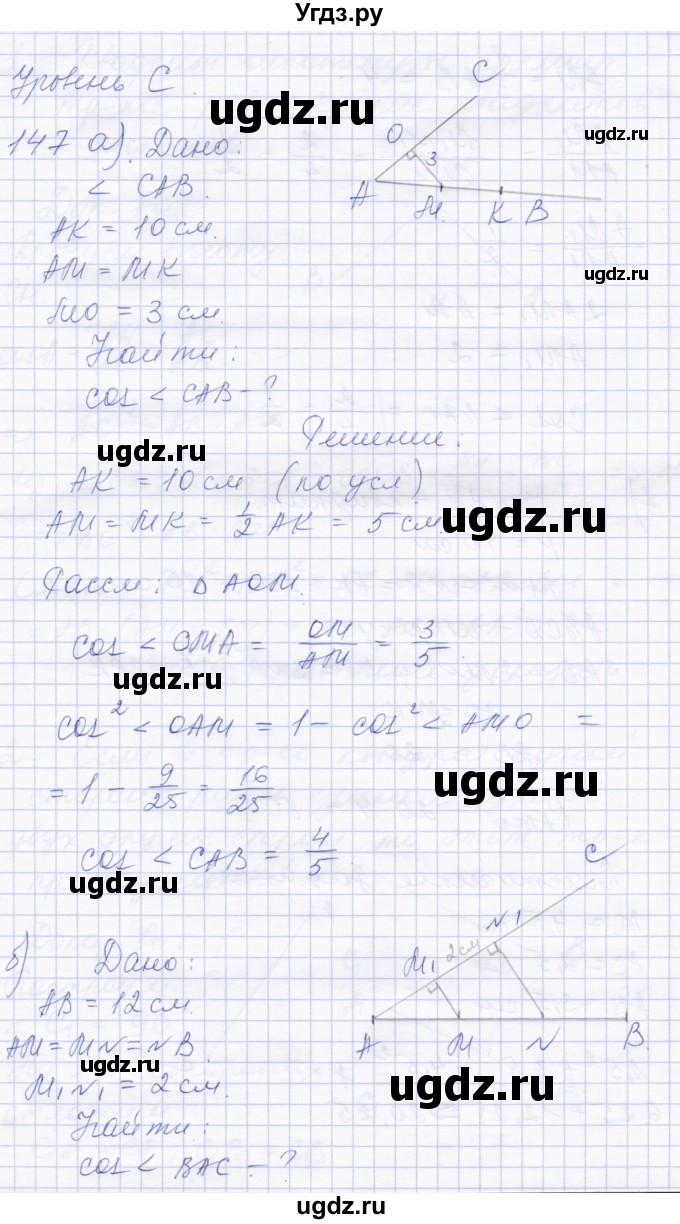 Угдз.ру
Уровень С.
147 а). Дано:
< CAB.
AK = 10 см.
AM = MK
MO = 3 см.
Найти:
cos < CAB - ?
C
O
3
A
M.
K
B
Решение:
AK = 10 см (по усл)
AM = MK = 1/2 AK = 5 см
Рассм: △ AOM.
cos < OMA = OM/AM = 3/5.
cos² < OAM = 1 - cos² < AMO =
= 1 - 9/25 = 16/25
cos < CAB = 4/5.
б) Дано:
AB = 12 см.
AM = MN = NB.
M₁N₁ = 2 см.
Найти:
cos < BAC - ?
C
N1
2 см
M₁
A
M
N
B.
ugdz.ru
ugdz.ru
ugdz.ru
ugdz.ru
ugdz.ru
ugdz.ru
ugdz.ru
ugdz.ru
ugdz.ru
ugdz.ru
ugdz.ru
ugdz.ru